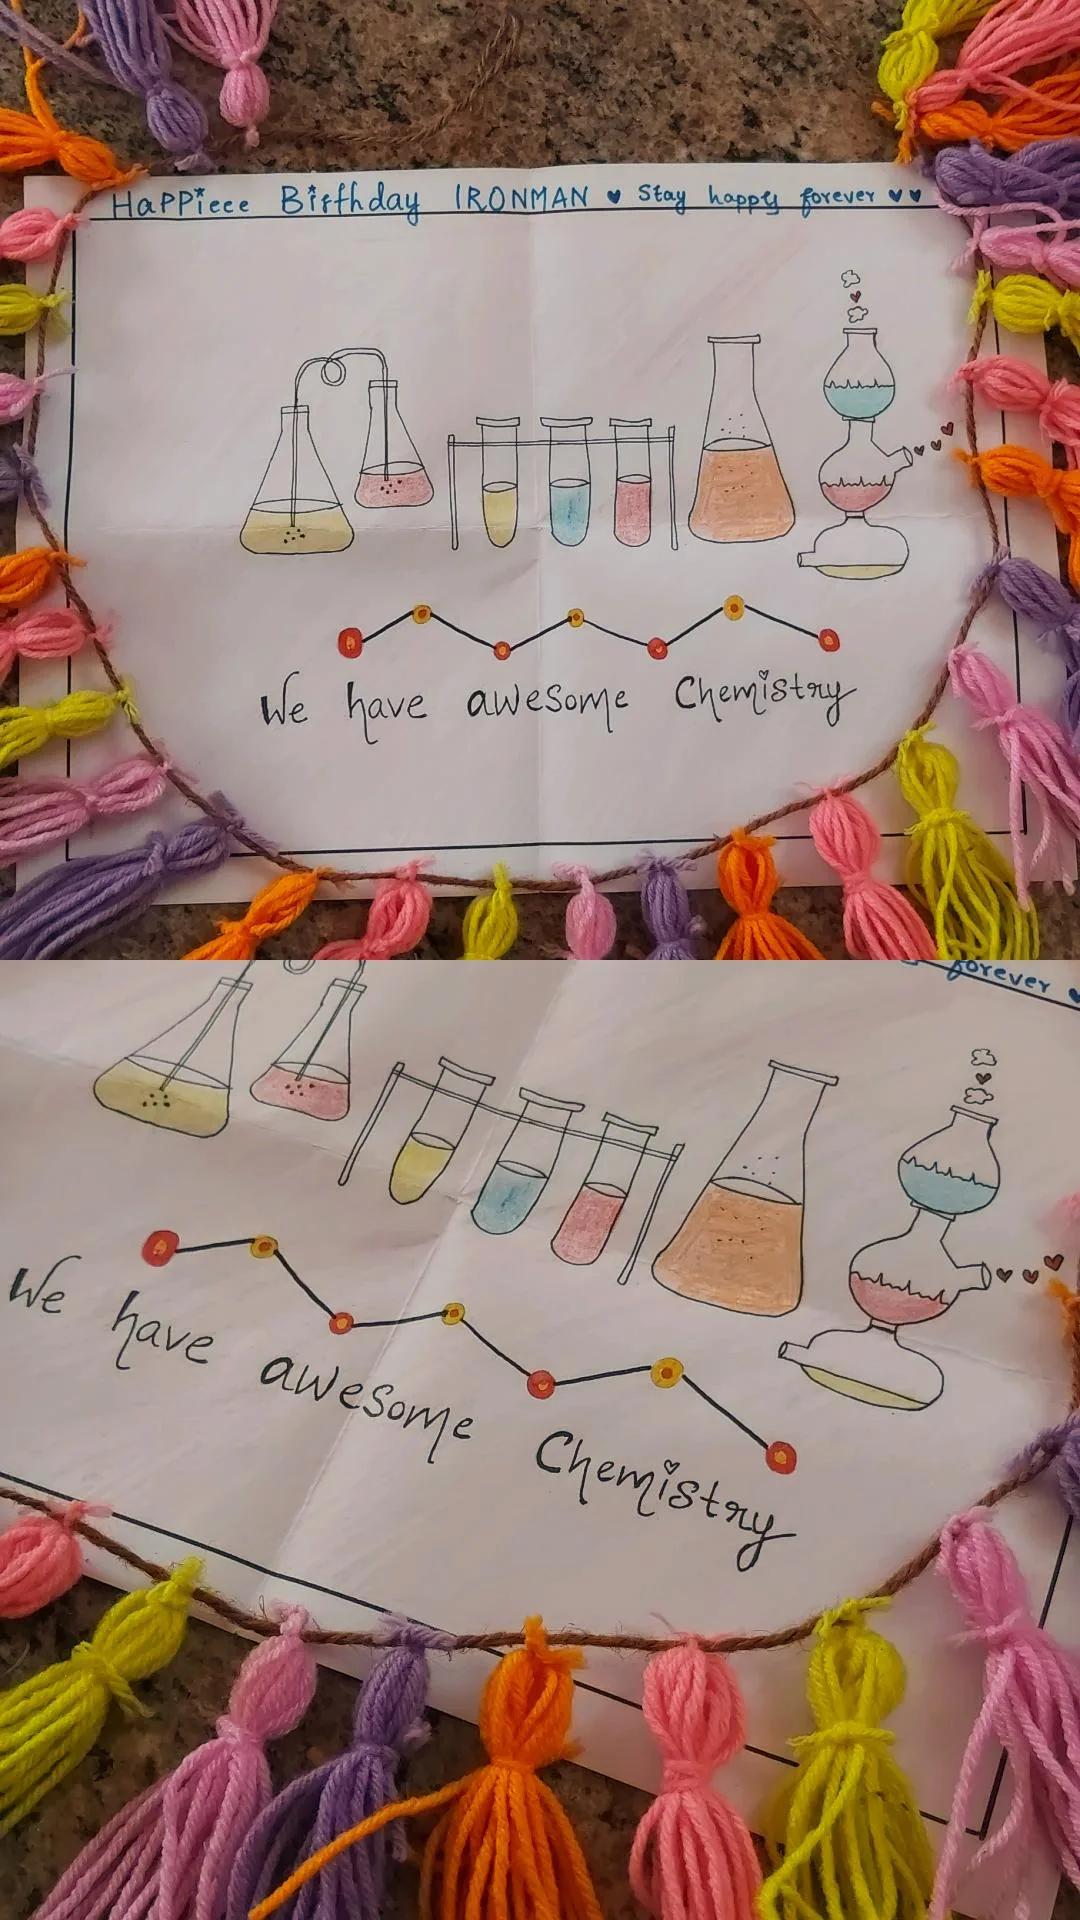 HaPPieee Birthday IRONMAN ♥ Stay happy forever ♥♥
We have awesome Chemistry
forever ♥
We have awesome Chemistry